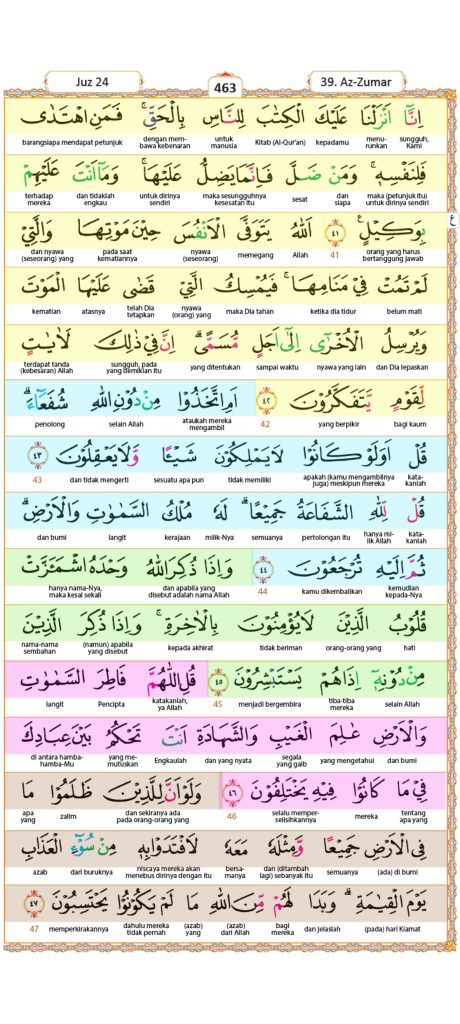 Juz 24
463
39. Az-Zumar
اِنَّآ اَنْزَلْنَا عَلَيْكَ الْكِتٰبَ لِلنَّاسِ بِالْحَقِّۚ فَمَنِ اهْتَدٰى
sungguh, Kami menurunkan kepadamu Kitab (Al-Qur'an) untuk manusia dengan membawa kebenaran barangsiapa mendapat petunjuk
فَلِنَفْسِهٖۚ وَمَنْ ضَلَّ فَاِنَّمَا يَضِلُّ عَلَيْهَاۚ وَمَآ اَنْتَ عَلَيْهِمْ
maka (petunjuk itu) untuk dirinya sendiri dan siapa sesat maka sesungguhnya kesesatan itu untuk dirinya sendiri dan tidaklah engkau terhadap mereka
بِوَكِيْلٍ ࣖ ٤١ اَللّٰهُ يَتَوَفَّى الْاَنْفُسَ حِيْنَ مَوْتِهَا وَالَّتِيْ
ع
orang yang harus bertanggung jawab 41 Allah memegang nyawa (seseorang) pada saat kematiannya dan nyawa (seseorang) yang
لَمْ تَمُتْ فِيْ مَنَامِهَاۚ فَيُمْسِكُ الَّتِيْ قَضٰى عَلَيْهَا الْمَوْتَ
belum mati ketika dia tidur maka Dia tahan nyawa (orang) yang telah Dia tetapkan atasnya kematian
وَيُرْسِلُ الْاُخْرٰٓى اِلٰٓى اَجَلٍ مُّسَمًّىۗ اِنَّ فِيْ ذٰلِكَ لَاٰيٰتٍ
dan Dia lepaskan nyawa yang lain sampai waktu yang ditentukan sungguh, pada yang demikian itu terdapat tanda (kebesaran) Allah
لِّقَوْمٍ يَّتَفَكَّرُوْنَ ٤٢ اَمِ اتَّخَذُوْا مِنْ دُوْنِ اللّٰهِ شُفَعَاۤءَۗ
bagi kaum yang berpikir 42 ataukah mereka mengambil selain Allah penolong
قُلْ اَوَلَوْ كَانُوْا لَا يَمْلِكُوْنَ شَيْـًٔا وَّلَا يَعْقِلُوْنَ ٤٣
katakanlah apakah (kamu mengambilnya juga) meskipun mereka tidak memiliki sesuatu apa pun dan tidak mengerti 43
قُلْ لِّلّٰهِ الشَّفَاعَةُ جَمِيْعًاۗ لَهٗ مُلْكُ السَّمٰوٰتِ وَالْاَرْضِۗ
katakanlah hanya milik Allah pertolongan itu semuanya milik-Nya kerajaan langit dan bumi
ثُمَّ اِلَيْهِ تُرْجَعُوْنَ ٤٤ وَاِذَا ذُكِرَ اللّٰهُ وَحْدَهُ اشْمَـَٔزَّتْ
kemudian kepada-Nya kamu dikembalikan 44 dan apabila yang disebut adalah nama Allah hanya nama-Nya, maka kesal sekali
قُلُوْبُ الَّذِيْنَ لَا يُؤْمِنُوْنَ بِالْاٰخِرَةِۚ وَاِذَا ذُكِرَ الَّذِيْنَ
hati orang-orang yang tidak beriman kepada akhirat (namun) apabila yang disebut nama-nama sembahan
مِنْ دُوْنِهٖٓ اِذَا هُمْ يَسْتَبْشِرُوْنَ ٤٥ قُلِ اللّٰهُمَّ فَاطِرَ السَّمٰوٰتِ
selain Allah tiba-tiba mereka menjadi bergembira 45 katakanlah, ya Allah Pencipta langit
وَالْاَرْضِ عٰلِمَ الْغَيْبِ وَالشَّهَادَةِ اَنْتَ تَحْكُمُ بَيْنَ عِبَادِكَ
dan bumi yang mengetahui segala yang gaib dan yang nyata Engkaulah yang memutuskan di antara hamba-hamba-Mu
فِيْ مَا كَانُوْا فِيْهِ يَخْتَلِفُوْنَ ٤٦ وَلَوْ اَنَّ لِلَّذِيْنَ ظَلَمُوْا مَا
tentang apa yang mereka selalu memperselisihkannya 46 dan sekiranya ada pada orang-orang yang zalim apa yang
فِى الْاَرْضِ جَمِيْعًا وَّمِثْلَهٗ مَعَهٗ لَافْتَدَوْا بِهٖ مِنْ سُوْۤءِ الْعَذَابِ
(ada) di bumi semuanya dan (ditambah lagi) sebanyak itu bersamanya niscaya mereka akan menebus dirinya dengan itu dari buruknya azab
يَوْمَ الْقِيٰمَةِۗ وَبَدَا لَهُمْ مِّنَ اللّٰهِ مَا لَمْ يَكُوْنُوْا يَحْتَسِبُوْنَ ٤٧
(pada) hari Kiamat dan jelaslah bagi mereka (azab) dari Allah (azab) yang dahulu mereka tidak pernah memperkirakannya 47